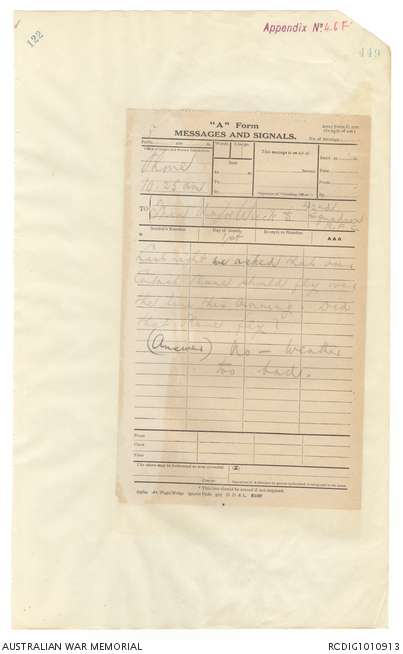 122
Appendix No 4.6 F
449
"A" Form
MESSAGES AND SIGNALS.
No. of Message
Prefix Code m.
Words
Charge
This message is on a/c of
Office of Origin and Service Instructions
Phone
10.25 am
Sent
At m.
To
By
Service
(Signature of "Franking Officer.")
Date
From
By
TO
Squadron
R.F.C
Sender's Number
Day of Month
In reply to Number
AAA
*
1st
Last night we asked that our
Contact plane should fly over
the line this evening. Did
that plane fly?
(Answer) No - Weather
too bad.
From
Place
Time
The above may be forwarded as now corrected.
(Z)
Censor.
* This line should be erased if not required.
AUSTRALIAN WAR MEMORIAL
RCDIG1010913